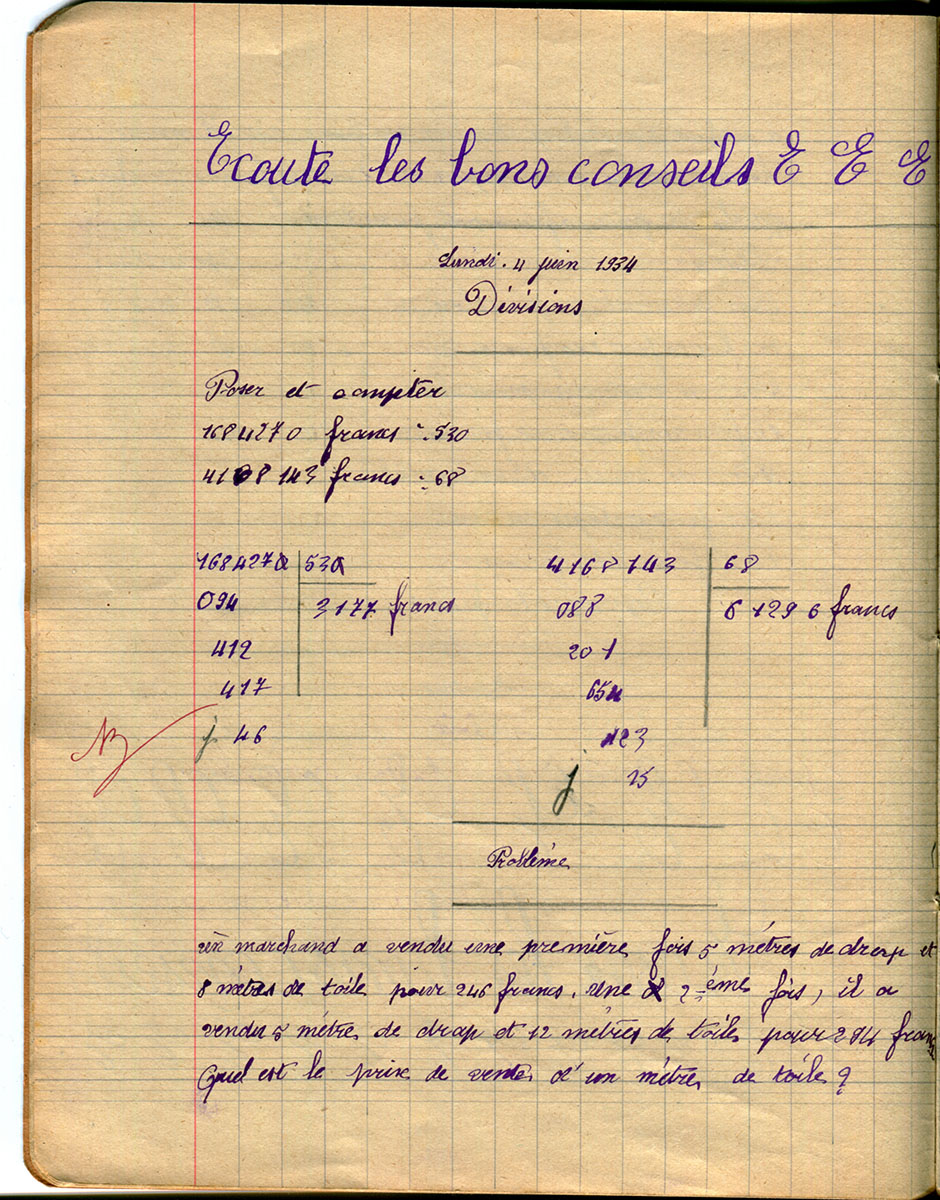 Ecoute les bons conseils E E E
Lundi. 4 juin 1934
Divisions
Poser et compter
1684270 francs : 530
4168143 francs : 68
1684270 530
094 3177 francs
412
417
j 46
4168143 68
088 61296 francs
201
654
423
j 15
Problème
un marchand a vendu une première fois 5 mètres de drap et
8 mètres de toile pour 246 francs. Une 2ème fois, il a
vendu 5 mètres de drap et 12 mètres de toile pour 294 francs
Quel est le prix de vente d'un mètres de toile?